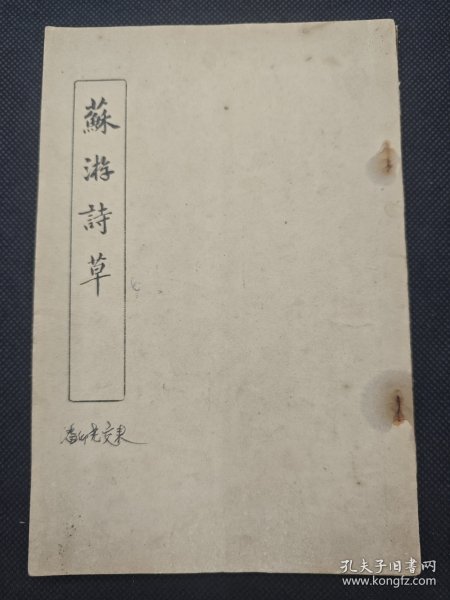 蘇游詩草
孔夫子旧書网
www.kongfz.com